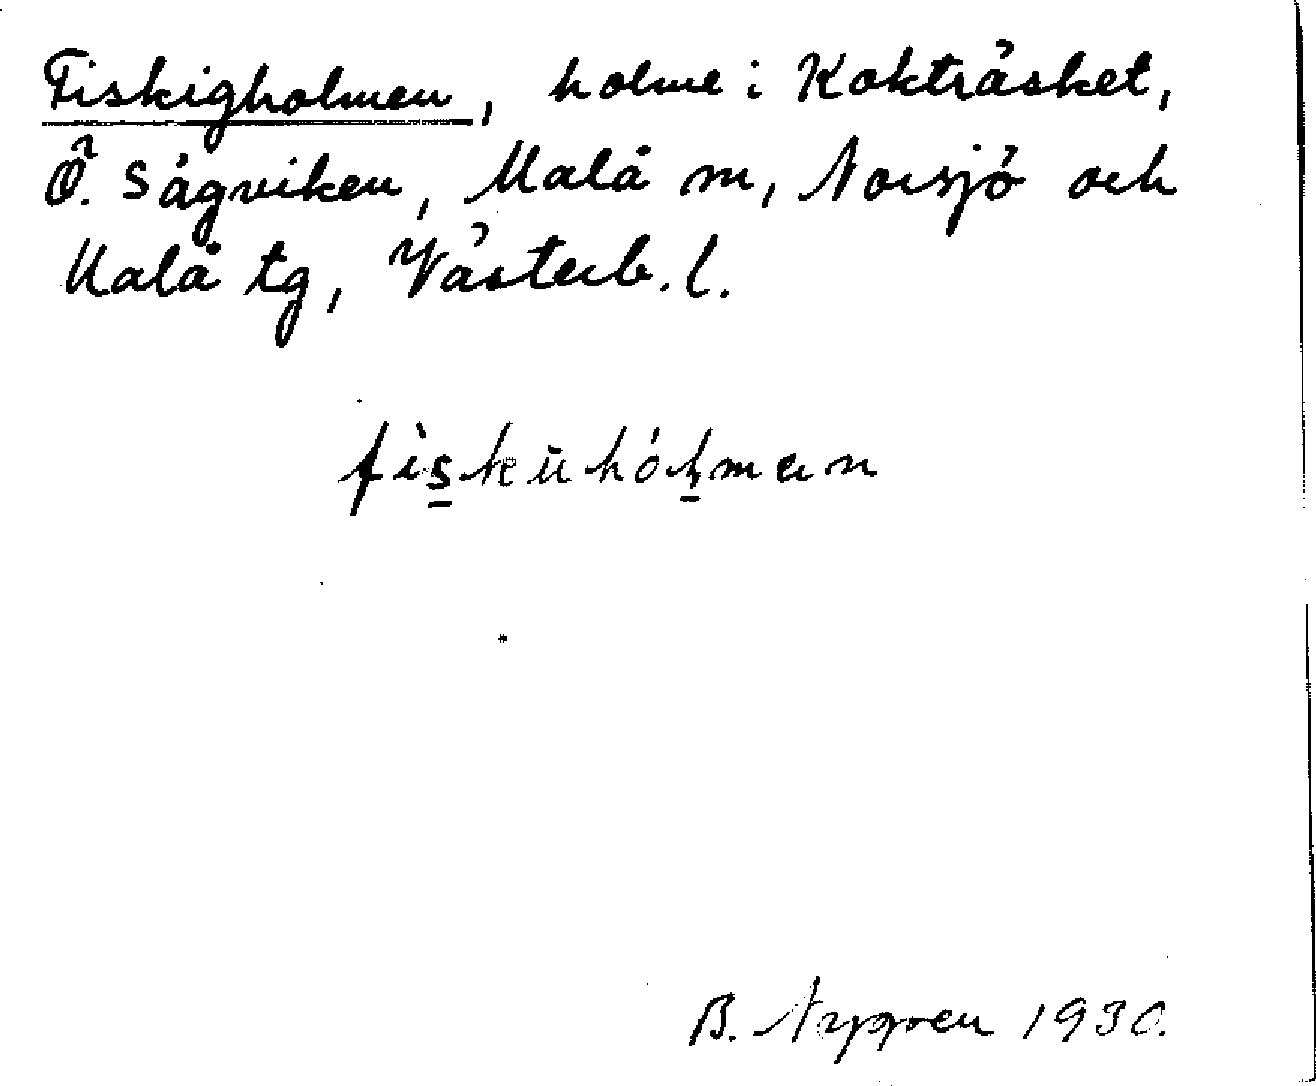 Fiskigholmen, holme i Kokträsket,
Ö. Sågviken, Malå sn, Norsjö och
Malå tg, Västerb. l.
B. Nygren 1930.